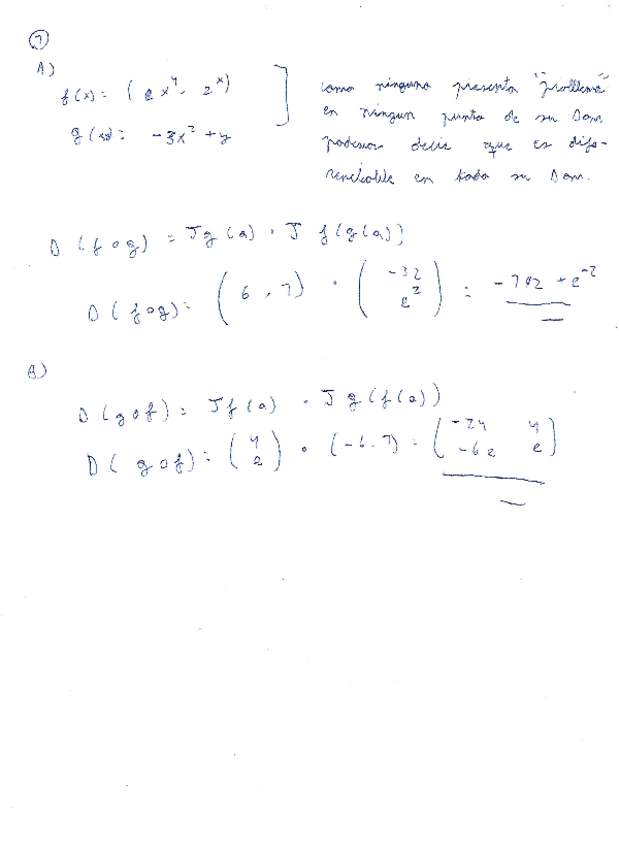 7
A)
f(x) = (e x⁴, 2^x)
g(x) = -3x² + y
como ninguna presenta "problema"
en ningun punto de su Dom
podemos decir que es dife-
renciable en todo su Dom.
D(f∘g) = Jg(a) · J f(g(a))
D(f∘g) = (6, 7) · (-32
e²) = -702 + e⁻²
B)
D(g∘f) = Jf(a) · J g(f(a))
D(g∘f) = (4
2) · (-6, 7) = (-24 4
-62 e)